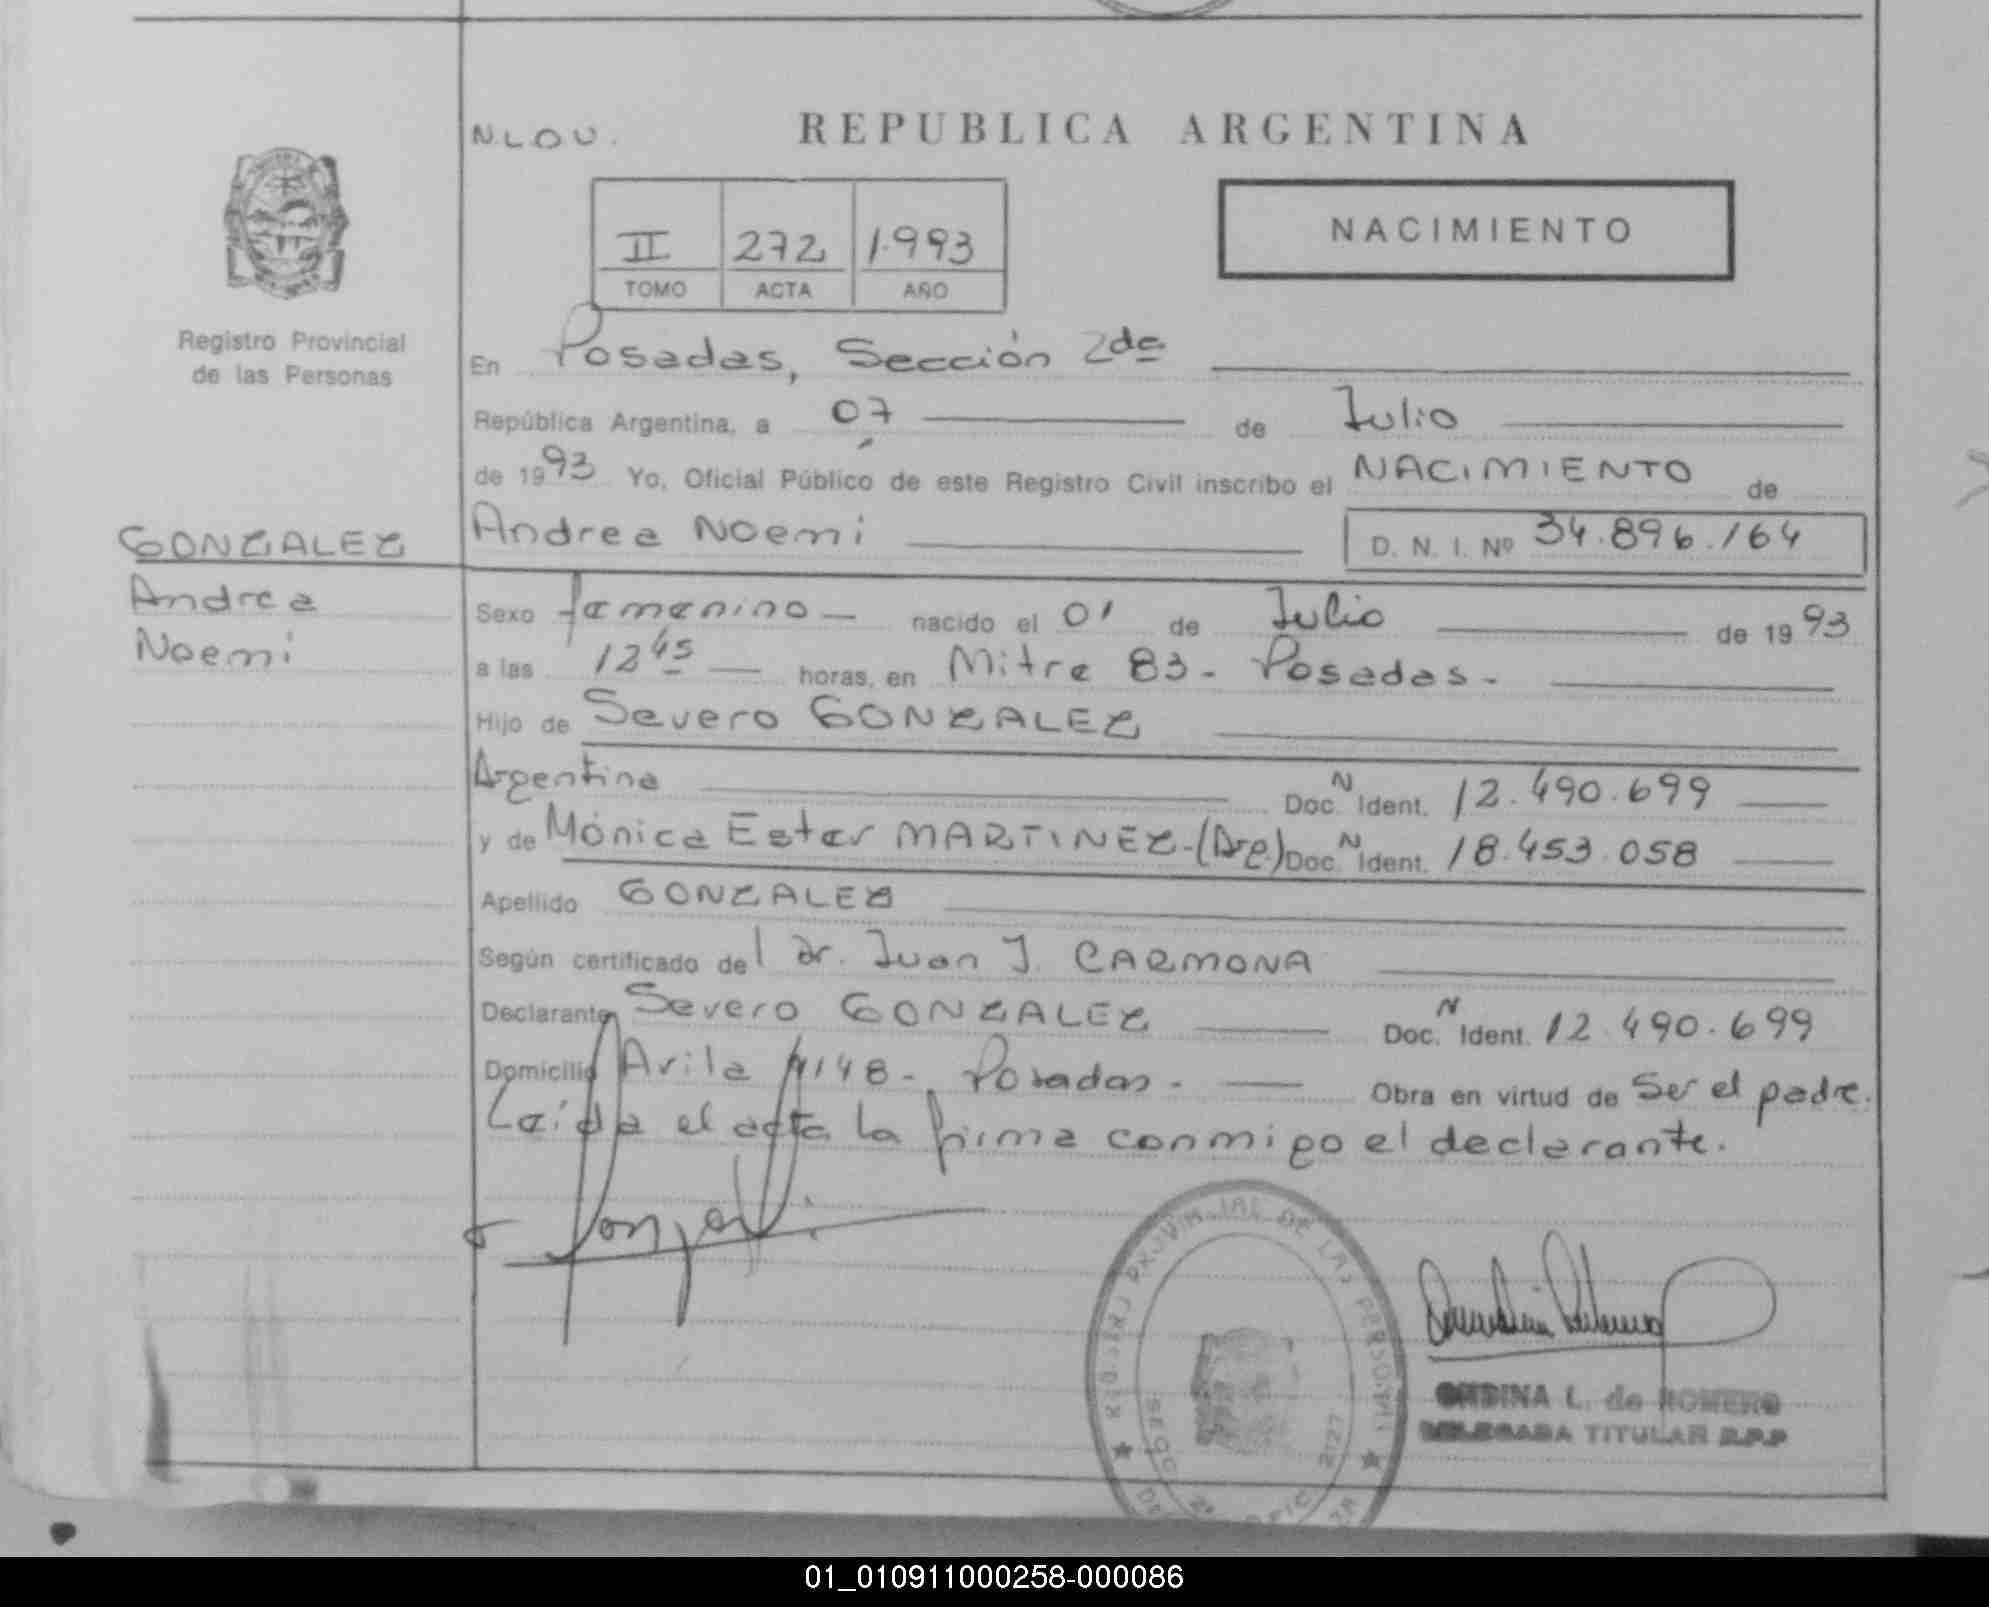 N.L.O.U. REPUBLICA ARGENTINA
II 272 1.993 NACIMIENTO
TOMO ACTA AÑO
Registro Provincial
de las Personas
En Posadas, Sección 2da
República Argentina, a 07 de Julio
de 1993 Yo, Oficial Público de este Registro Civil inscribo el NACIMIENTO de
GONZALEZ
Andrea
Noemi
Andrea Noemi D. N. I. Nº 34.896.164
Sexo femenino nacido el 01 de Julio de 1993
a las 12 45 horas, en Mitre 83 - Posadas -
Hijo de Severo GONZALEZ
Argentina Doc. N Ident. 12.490.699
y de Mónica Ester MARTINEZ - (Arg.) Doc. N Ident. 18.453.058
Apellido GONZALEZ
Según certificado del Dr. Juan J. CARMONA
Declarante Severo GONZALEZ Doc. N Ident. 12.490.699
Domicilio 4148 - Posadas - Obra en virtud de Ser el padre.
Leída el acta la firma conmigo el declarante.
REGISTRO PROVINCIAL DE LAS PERSONAS
SECC 2ª OFIC 2127
ONDINA L. de ROMERO
DELEGADA TITULAR R.P.P
01_010911000258-000086